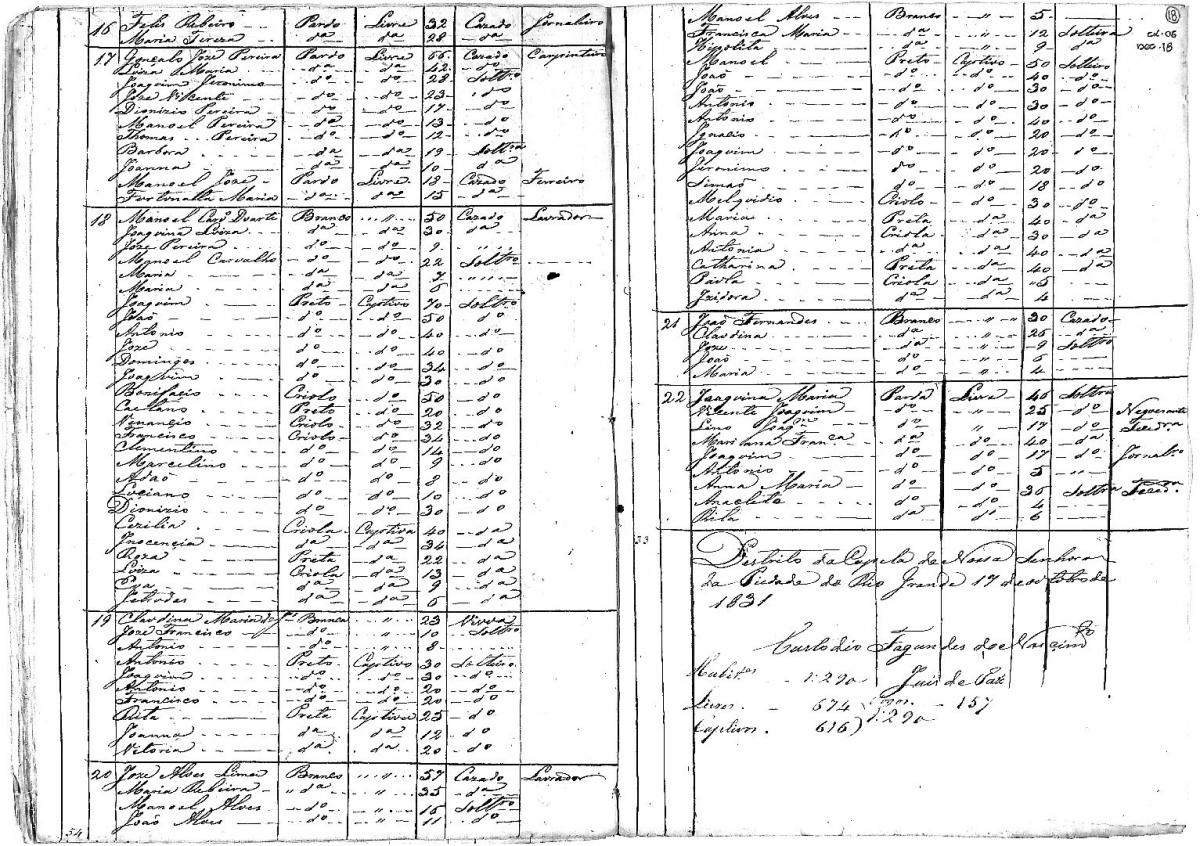 16 Felis Ribeiro Pardo Livre 32 Cazado Jornaleiro
Maria Tereza dª dª 28 dª
17 Gonçalo Joze Pereira Pardo Livre 66 Cazado Carpinteiro
Luiza Maria dª dª 42 dº
Joaquim Jeronimo dº dº 28 Soltrº
Joze Vicente dº dº 23 dº
Dionizio Pereira dº dº 17 dº
Manoel Pereira dº dº 13 dº
Thomas Pereira dº dº 12 dº
Barbora dª dª 19 Soltra
Joanna dª dª 10 dª
Manoel Joze Pardo Livre 18 Cazado Ferreiro
Fortunatta Maria dª dª 15 dª
18 Manoel Duarte Branco " 50 Cazado Lavrador
Joaquina Luiza dª dª 30 dª
Joze Pereira dº dº 9 "
Manoel Carvalho dº dº 22 Soltro
Maria dª dª 7 "
Maria dª dª 6
Joaquim Preto Captivo 70 Soltro
João dº dº 50 dº
Antonio dº dº 40 dº
Joze dº dº 40 dº
Domingos dº dº 34 dº
Joaquim dº dº 30 dº
Bonifacio Criolo dº 50 dº
Caetano Preto dº 20 dº
Venancio Criolo dº 32 dº
Francisco Criolo dº 34 dº
Clementino dº dº 14 dº
Marcelino dº dº 9 dº
Adaõ dº dº 8 dº
Luciano dº dº 10 dº
Dionizio dº dº 30 dº
Cezilia Criola Captiva 40 dª
Inocencia dª dª 34 dª
Roza Preta dª 22 dª
Luiza Criola dª 13 dª
Eva dª dª 9 dª
Jetrudes dª dª 6 dª
19 Claudina Maria de Branca " 23 Viuva
Joze Francisco dº " 10 Soltro
Antonio dº " 8
Antonio Preto Captivo 30 Solteiro
Joaquim dº dº 30 dº
Antonio dº dº 20 dº
Francisco dº dº 20 dº
Rita Preta Captiva 25 dª
Joanna dª dª 12 dº
Vitoria dª dª 20 dº
20 Joze Alves Lima Branco " 57 Cazado Lavrador
Maria Ribeira dª " 35 dª
Manoel Alves dº " 16 Soltro
João Alves dº " 11 dº
54
18
Manoel Alves Branco " 5
Francisca Maria dª " 12 Solteira
Hipolita dª " 9 dª
Manoel Preto Captivo 50 Solteiro
João dº dº 40 dº
João dº dº 30 dº
Antonio dº dº 30 dº
Antonio dº dº 40 dº
Ignacio dº dº 20 dº
Joaquim dº dº 20 dº
Jeronimo dº dº 20 dº
Simaõ dº dº 18 dº
Melquidio Criolo dº 30 dº
Maria Preta dª 40 dª
Anna Criola dª 30 dª
Antonia dª dª 40 dª
Catharina Preta dª 40 dª
Paula Criola dª 5
Izidora dª dª 4
21 João Fernandes Branco " 30 Cazado
Claudina dª " 26 dª
Joze dº " 9 Soltro
João dº " 6
Maria dª " 4
22 Joaquina Maria Parda Livre 46 Soltra
Vicente Joaquim dº " 25 dº Negociante
Lino dº " 17 dº
Marianna Franca dª dº 40 dª
Joaquim dº dº 17 dº Jornalro
Antonio dº dº 5 "
Anna Maria dª dº 36 Soltra
Anacleto dº dº 4
Rita dª dº 6
33
Destrito da Capela de Nossa Senhora
da Piedade do Rio Grande 17 de outubro de
1831
Custodio Fagundes do Nascimto
Juis de Paz
Habites 1:290
Livres 674 Fogos 157
Captivos 616 1:290